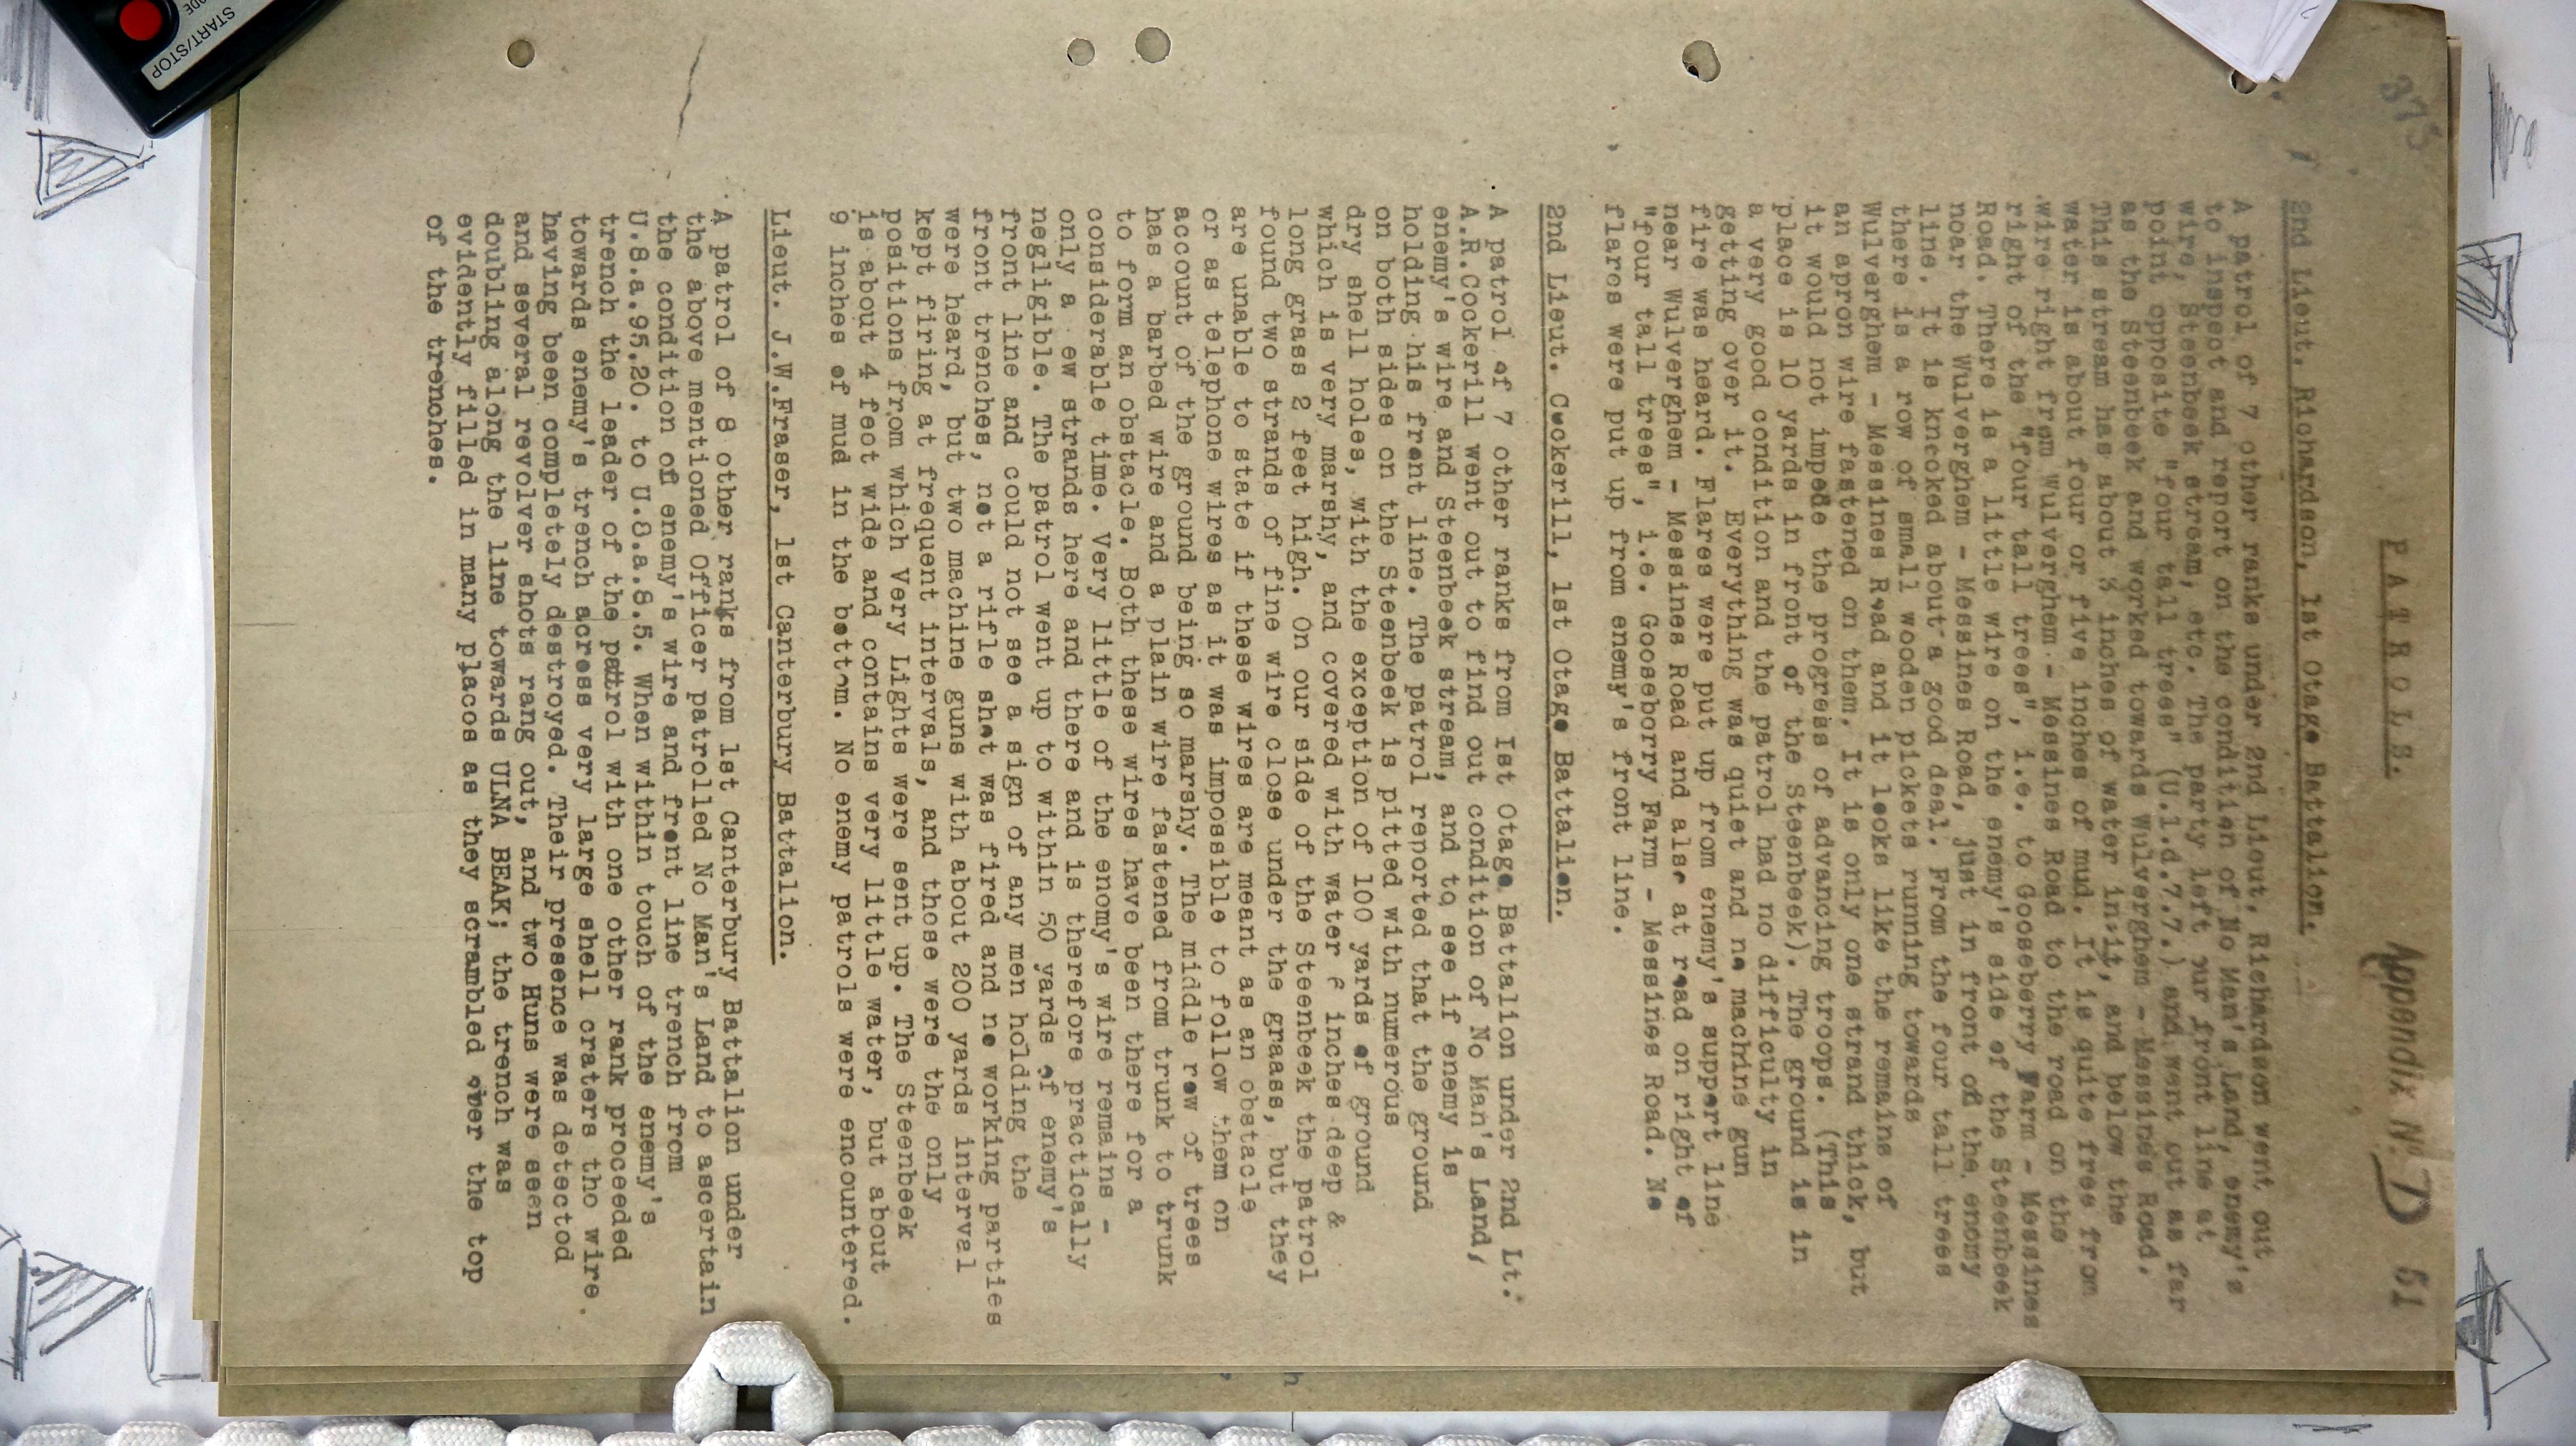 375
Appendix No. D 51
PATROLS.
2nd Lieut. Richardson, 1st Otago Battalion.
A patrol of 7 other ranks under 2nd Liout. Richardson went out
to inspect and report on the condition of No Man's Land, enemy's
wire, Steenbeek stream, etc. The party left our front line at
point opposite "four tall trees" (U.1.d.7.7.) and went out as far
as the Steenbeek and worked towards Wulverghem - Messines Road.
This stream has about 3 inches of water in it, and below the
water is about four or five inches of mud. It is quite free from
wire right from Wulverghem - Messines Road to the road on the
right of the "four tall trees", i.e. to Gooseberry Farm - Messines
Road. There is a little wire on the enemy's side of the Steenbeek
noar the Wulverghem - Messines Road, just in front of the enemy
line. It is knocked about a good deal. From the four tall trees
there is a row of small wooden pickets running towards
Wulverghem - Messines Road and it looks like the remains of
an apron wire fastened on them. It is only one strand thick, but
it would not impede the progress of advancing troops. (This
place is 10 yards in front of the Steenbeek). The ground is in
a very good condition and the patrol had no difficulty in
getting over it. Everything was quiet and no machine gun
fire was heard. Flares were put up from enemy's support line
near Wulverghem - Messines Road and also at road on right of
"four tall trees", i.e. Gooseborry Farm - Messines Road. No
flares were put up from enemy's front line.
2nd Lieut. Cockerill, 1st Otago Battalion.
A patrol of 7 other ranks from Ist Otago Battalion under 2nd Lt.
A.R.Cockerill went out to find out condition of No Man's Land,
enemy's wire and Steenbeek stream, and to see if enemy is
holding his front line. The patrol reported that the ground
on both sides on the Steenbeek is pitted with numerous
dry shell holes, with the exception of 100 yards of ground
which is very marshy, and covered with water 6 inches deep &
long grass 2 feet high. On our side of the Steenbeek the patrol
found two strands of fine wire close under the graass, but they
are unable to state if these wires are meant as an obstacle
or as telephone wires as it was impossible to follow them on
account of the ground being so marshy. The middle row of trees
has a barbed wire and a plain wire fastened from trunk to trunk
to form an obstacle. Both these wires have been there for a
considerable time. Very little of the enomy's wire remains -
only a ew strands here and there and is therefore practically
negligible. The patrol went up to within 50 yards of enemy's
front line and could not see a sign of any men holding the
front trenches, not a rifle shot was fired and no working parties
were heard, but two machine guns with about 200 yards interval
kept firing at frequent intervals, and those were the only
positions from which Very Lights were sent up. The Steenbeek
is about 4 feot wide and contains very little water, but about
9 inches of mud in the bottom. No enemy patrols were encountered.
Lieut. J.W.Fraser, 1st Canterbury Battalion.
A patrol of 8 other ranks from 1st Canterbury Battalion under
the above mentioned Officer patrolled No Man's Land to ascertain
the condition of enemy's wire and front line trench from
U.8.a.95.20. to U.8.a.8.5. When within touch of the enemy's
trench the leader of the pattrol with one other rank proceeded
towards enemy's trench across very large shell craters tho wire
having been completely destroyed. Their presence was detoctod
and several revolver shots rang out, and two Huns were seen
doubling along the line towards ULNA BEAK; the trench was
evidently filled in many placos as they scrambled over the top
of the trenches.
START/STOP